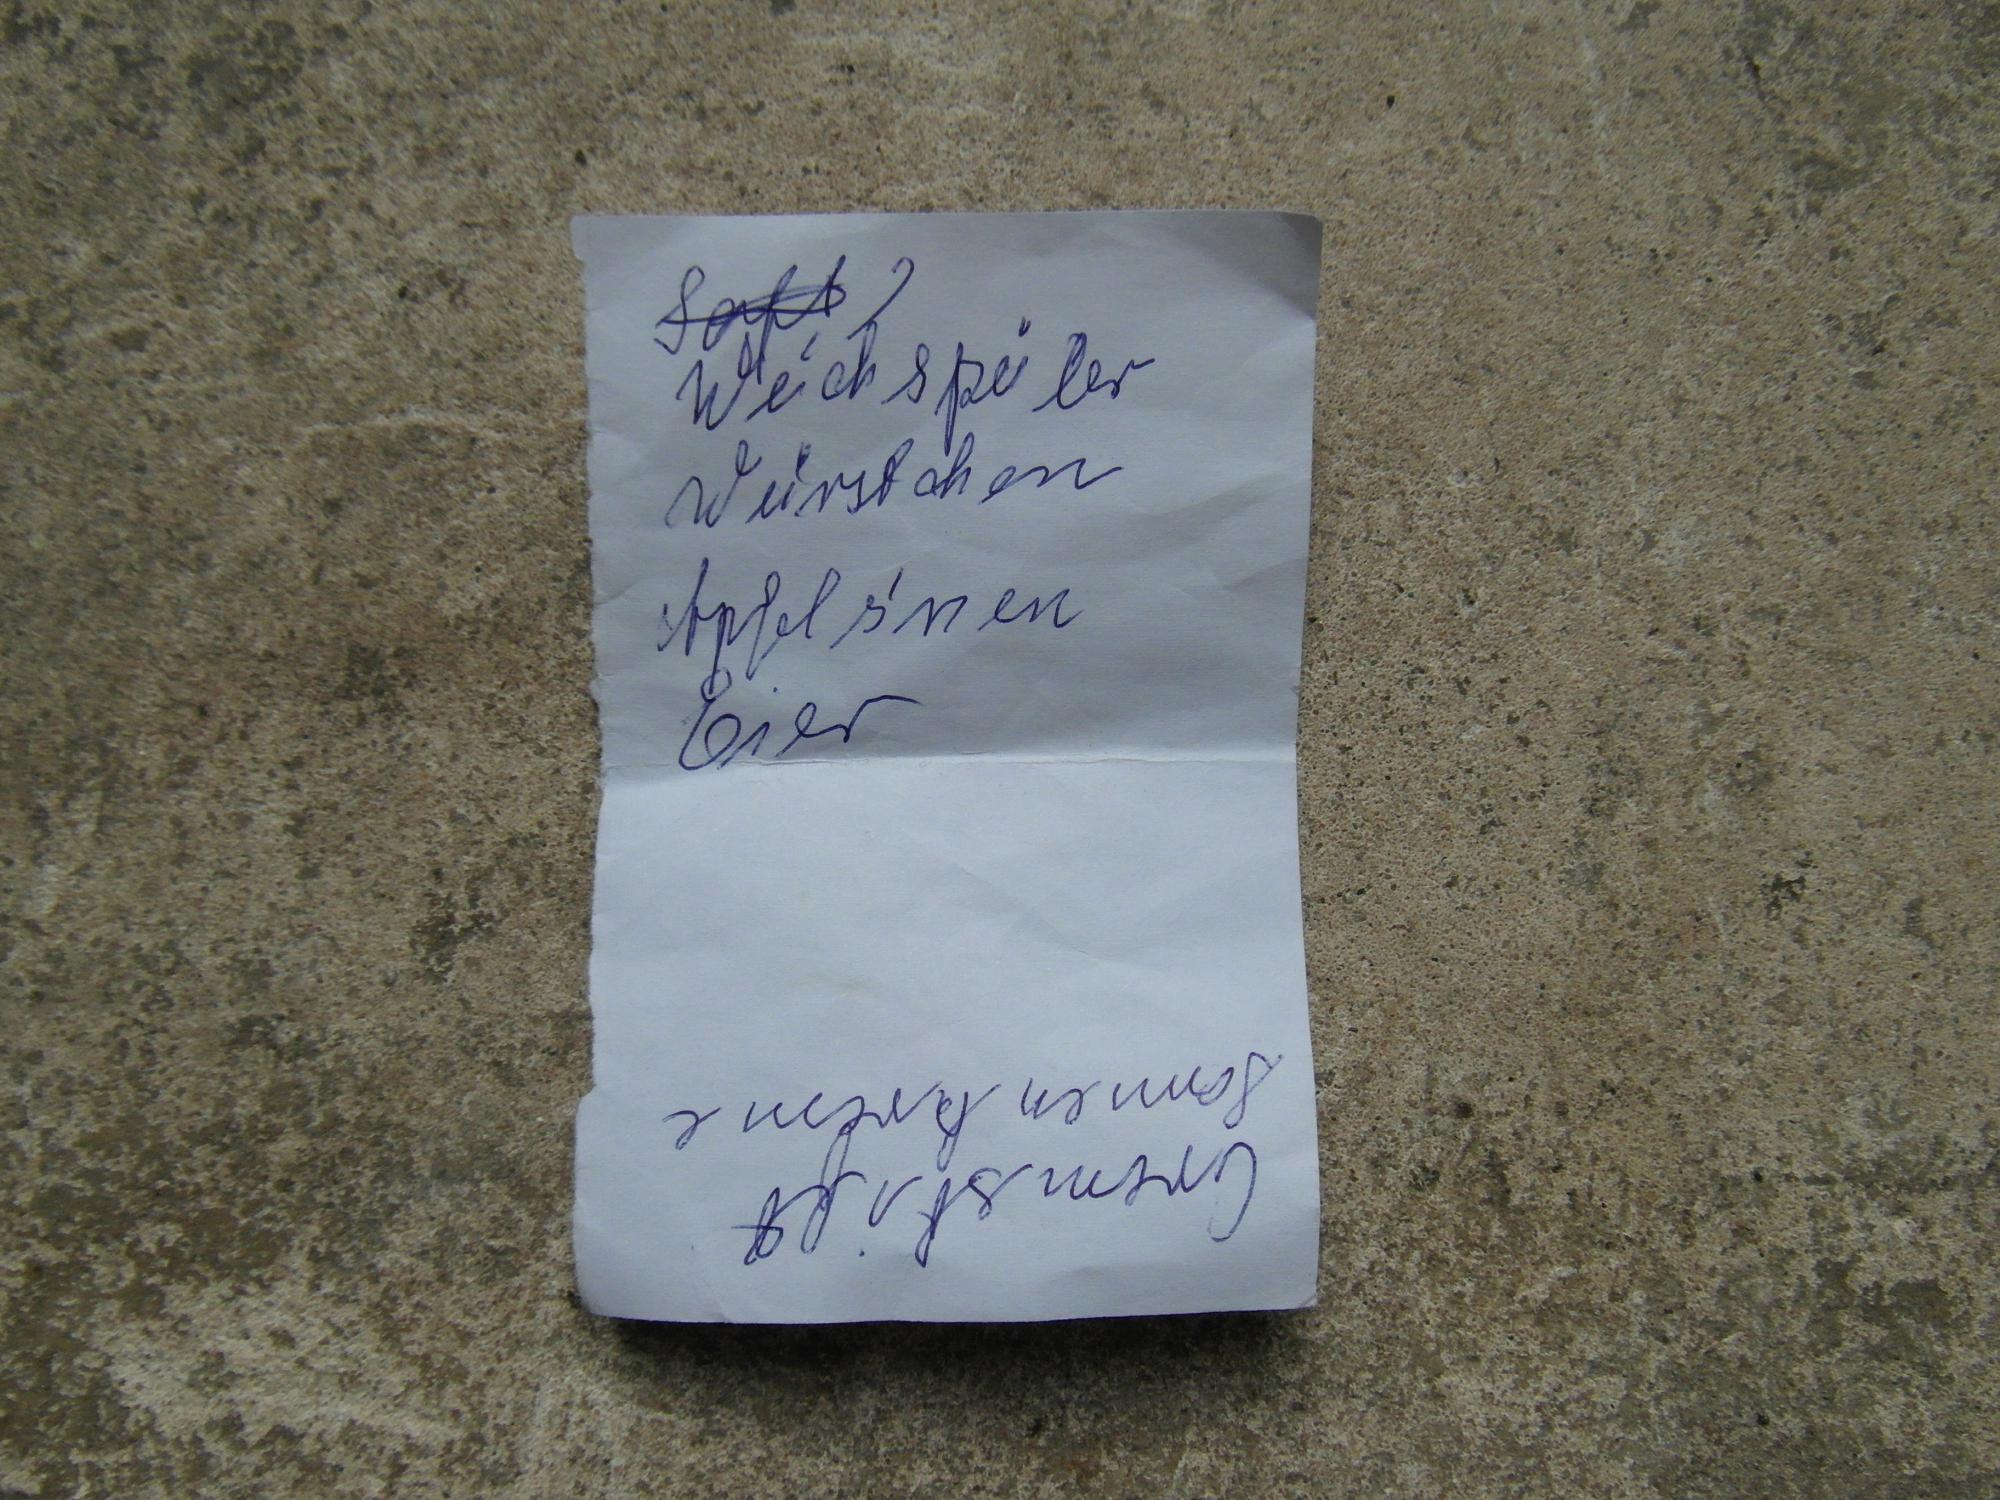 Saft ?
Weichspüler
Würstchen
Apfelsinen
Eier
Cremstift
Sonnenkreme